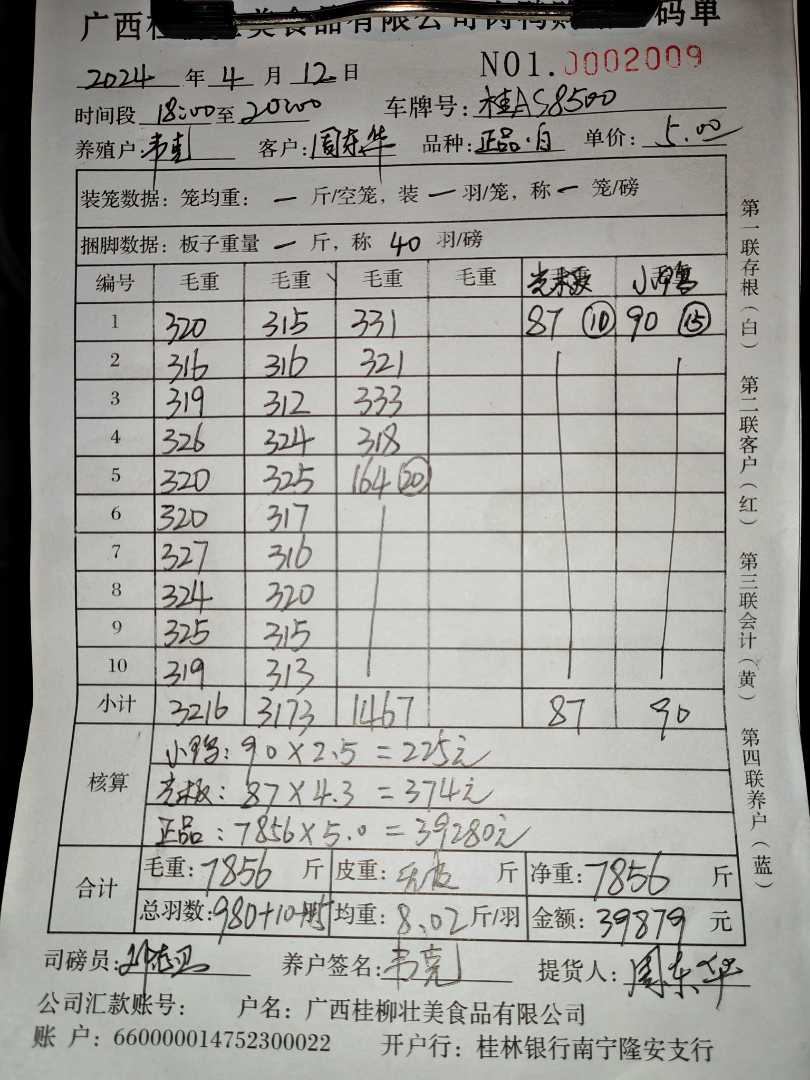 广西桂 壮美食品有限公司肉鸭 码单
2024 年 4 月 12 日 NO1.0002009
时间段 18:00 至 20:00 车牌号: 桂AS8500
养殖户: 韦克 客户: 周东华 品种: 正品·白 单价: 5.00
装笼数据: 笼均重: 一 斤/空笼, 装 一 羽/笼, 称 一 笼/磅
捆脚数据: 板子重量 一 斤, 称 40 羽/磅
编号 毛重 毛重 毛重 毛重 光板 小鸭
1 320 315 331 87 ⑩ 90 ⑮
2 316 316 321
3 319 312 333
4 326 324 318
5 320 325 164 ⑳
6 320 317
7 327 316
8 324 320
9 325 315
10 319 313
小计 3216 3173 1467 87 90
核算
小鸭: 90×2.5=225元
光板: 87×4.3=374元
正品: 7856×5.0=39280元
合计
毛重: 7856 斤 皮重: 斤 净重: 7856 斤
总羽数: 980+10+15 均重: 8.02 斤/羽 金额: 39879 元
司磅员: 养户签名: 韦克 提货人: 周东华
公司汇款账号: 户名: 广西桂柳壮美食品有限公司
账 户: 660000014752300022 开户行: 桂林银行南宁隆安支行
第一联存根(白) 第二联客户(红) 第三联会计(黄) 第四联养户(蓝)